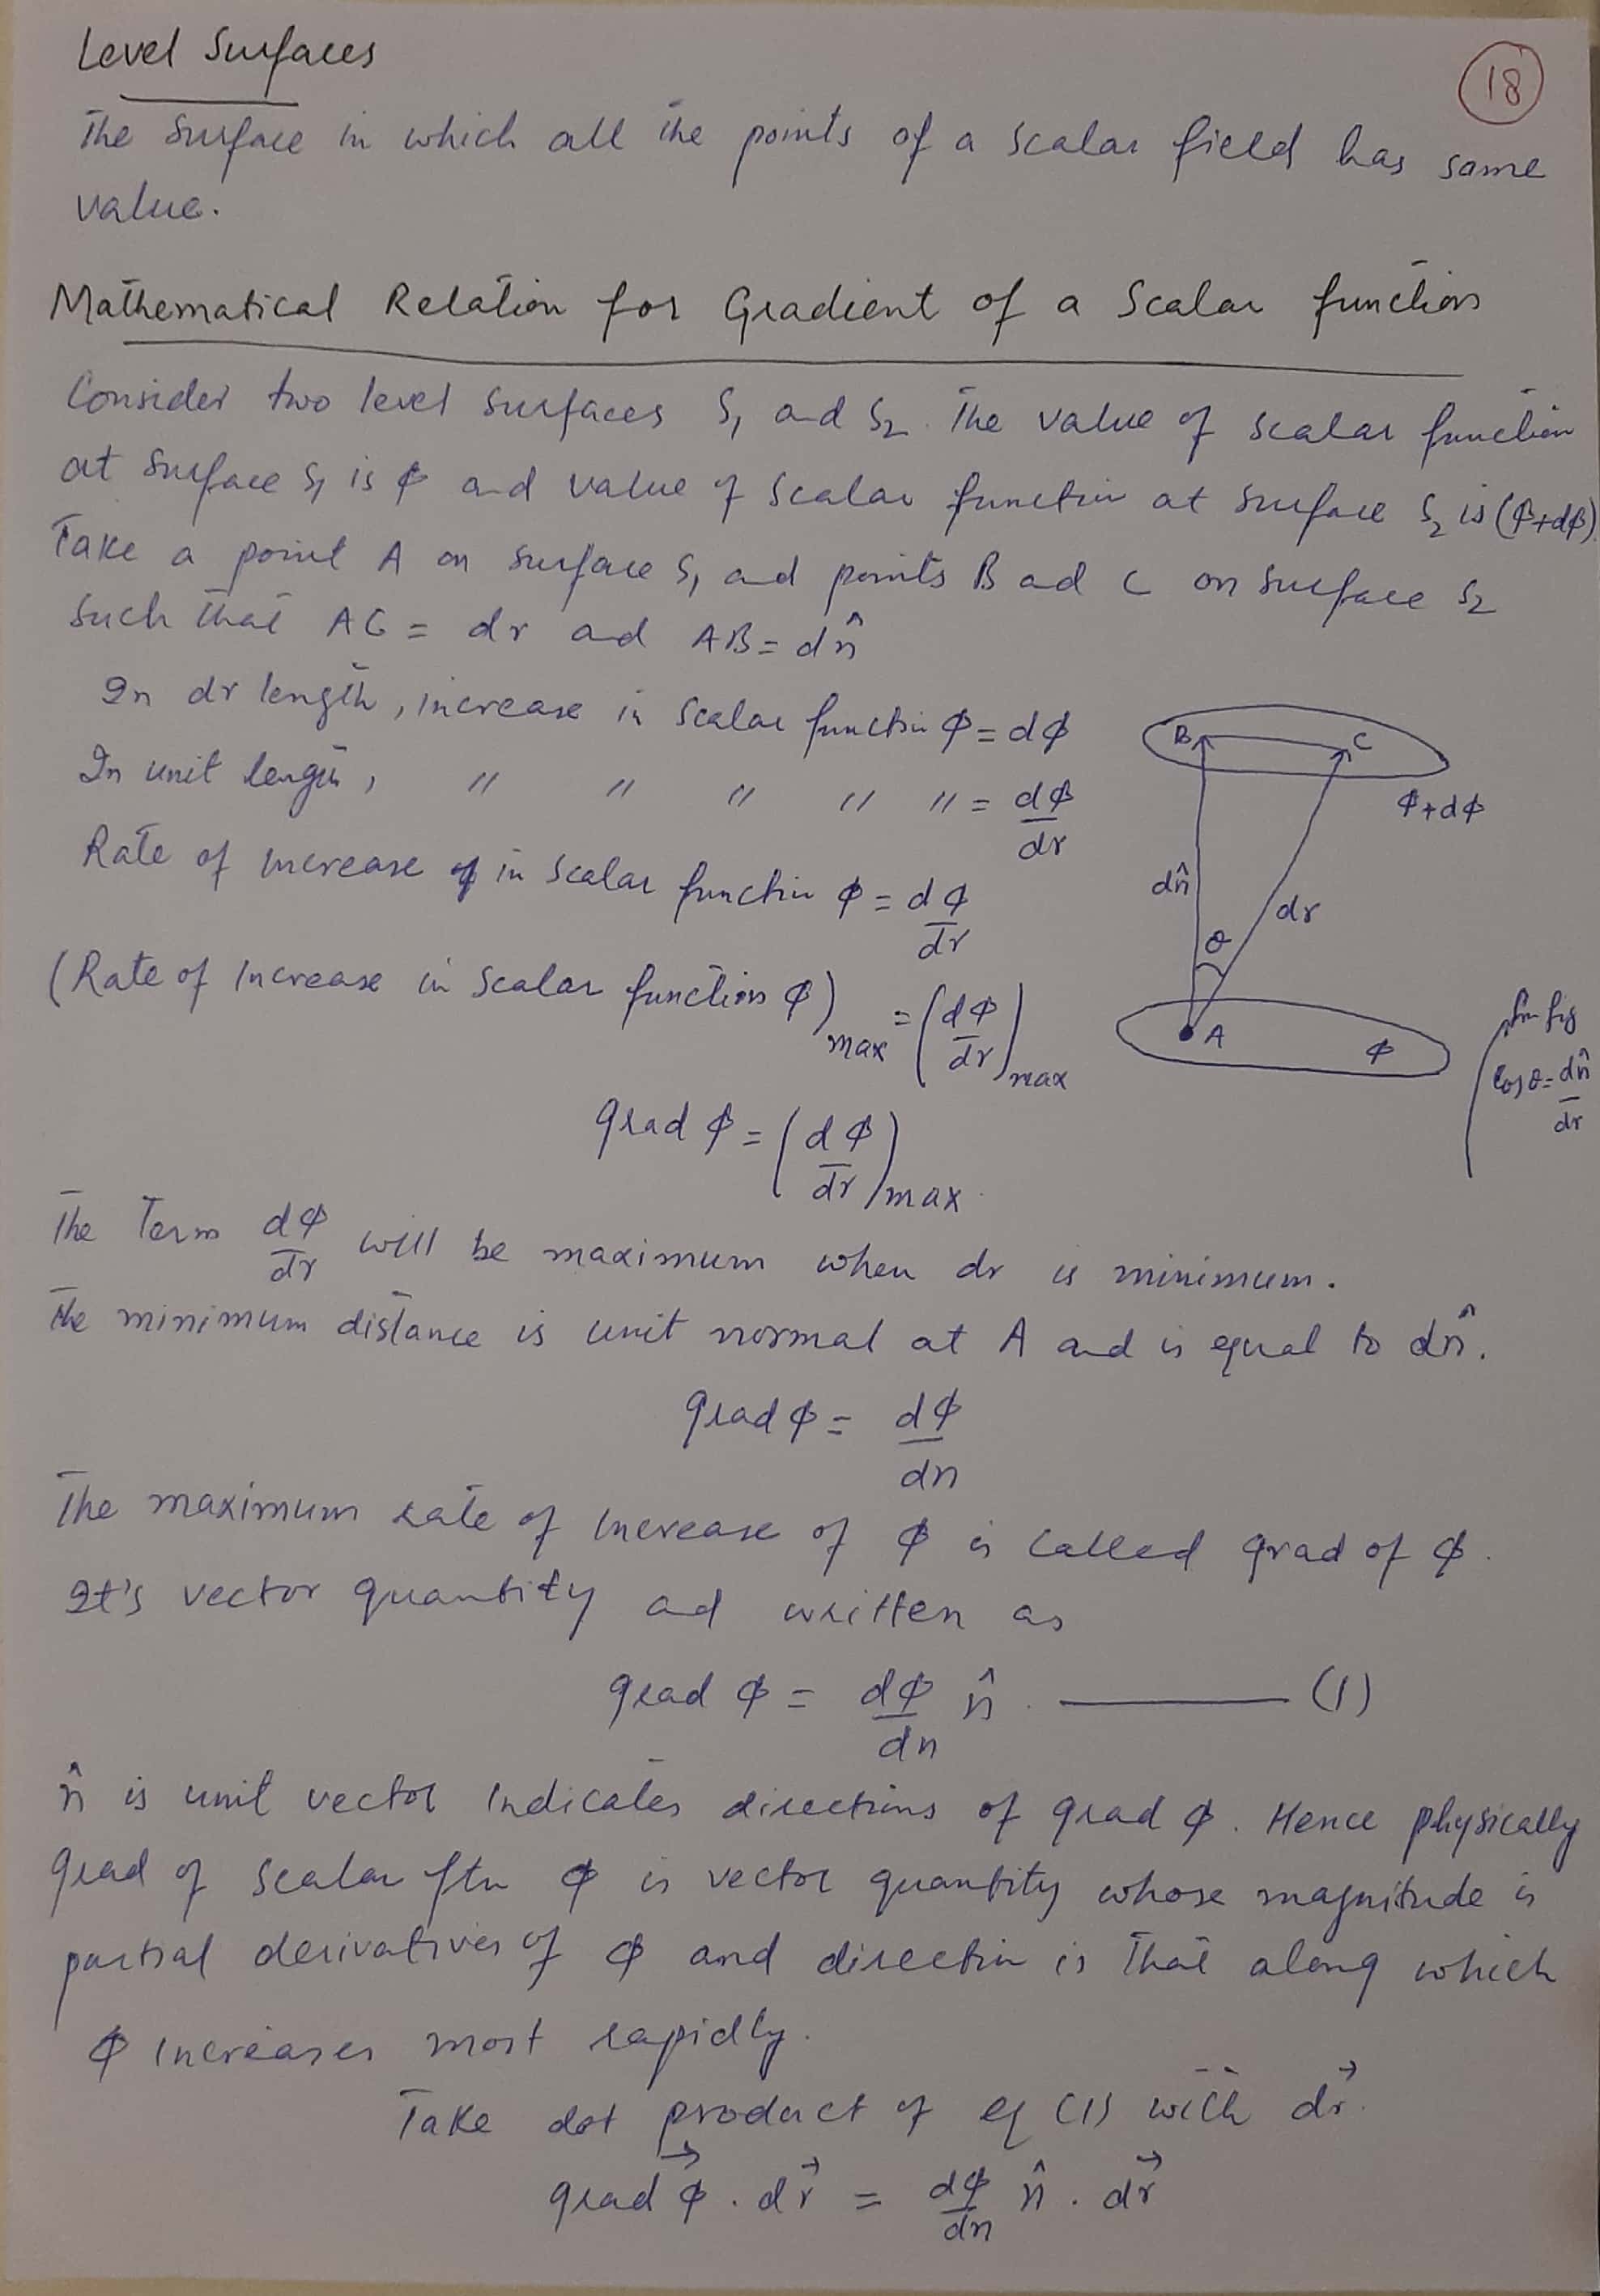 Level Surfaces
18
The Surface in which all the points of a scalar field has same
value.
Mathematical Relation for Gradient of a Scalar function
Consider two level surfaces S₁ and S₂. The value of scalar function
at surface S₁ is ϕ and value of scalar function at surface S₂ is (ϕ+dϕ).
Take a point A on surface S₁ and points B ad C on surface S₂
such that AC = dr ad AB = dn̂
In dr length, increase in scalar function ϕ = dϕ
In unit length, " " " " " = dϕ/dr
Rate of increase in scalar function ϕ = dϕ/dr
(Rate of Increase in Scalar function ϕ)max = (dϕ/dr)max
B C
ϕ+dϕ
dn̂ dr
θ
A ϕ
from fig
Cos θ = dn̂/dr
grad ϕ = (dϕ/dr)max
The Term dϕ/dr will be maximum when dr is minimum.
The minimum distance is unit normal at A and is equal to dn̂.
grad ϕ = dϕ/dn
The maximum rate of increase of ϕ is called grad of ϕ.
It's vector quantity ad written as
grad ϕ = dϕ/dn n̂ ——— (1)
n̂ is unit vector indicates directions of grad ϕ. Hence physically
grad of scalar ftn ϕ is vector quantity whose magnitude is
partial derivatives of ϕ and direction is that along which
ϕ increases most rapidly.
Take dot product of eq (1) with dr⃗.
grad⃗ ϕ . dr⃗ = dϕ/dn n̂ . dr⃗